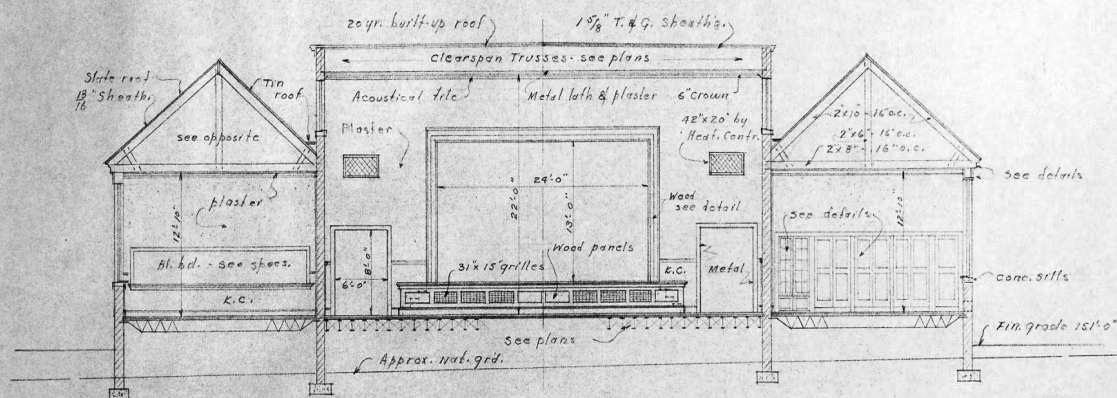 20 yr. built-up roof
1 5/8" T. & G. Sheath'g.
Clearspan Trusses - see plans
Slate roof
13/16" Sheath.
Tin
roof
Acoustical tile
Metal lath & plaster
6" Crown
see opposite
Plaster
42"x20" by
Heat. Contr.
2"x10" - 16" o.c.
2"x6" - 16" o.c.
2"x8" - 16" o.c.
See details
24'-0"
plaster
12'-10"
22'-0"
13'-0"
Wood
see detail
see details
12'-10"
8'-0"
6'-0"
Wood panels
31"x15" grilles
Bl. bd. - see specs.
K.C.
K.C.
Metal
Conc. sills
See plans
Fin. grade 151'-0"
Approx. Nat. grd.